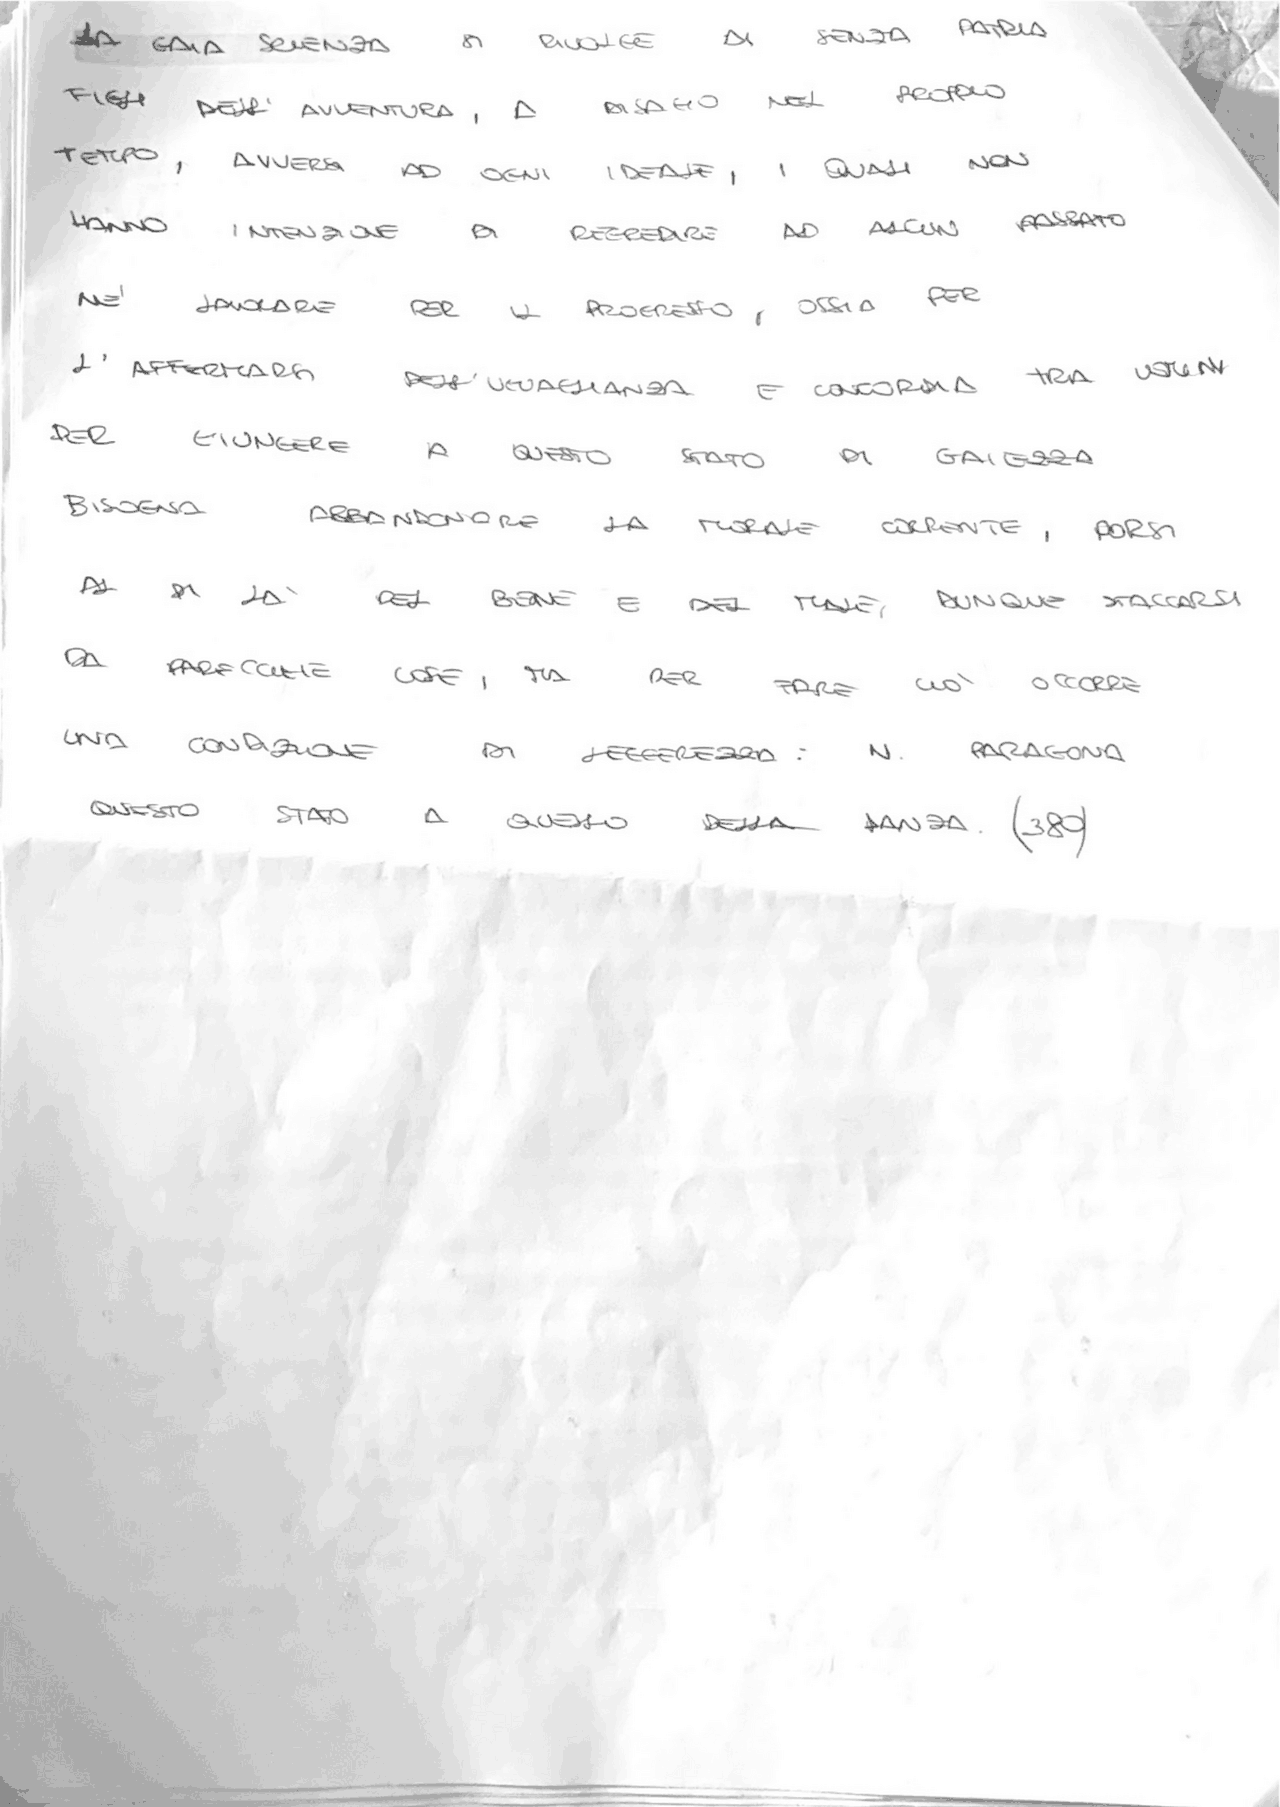 LA GAIA SCIENZA SI RIVOLGE AI SENZA PATRIA
FIGLI DELL' AVVENTURA, A DISAGIO NEL PROPRIO
TEMPO, AVVERSI AD OGNI IDEALE, I QUALI NON
HANNO INTENZIONE DI REGREDIRE AD ALCUN PASSATO
NE' LAVORARE PER IL PROGRESSO, OSSIA PER
L' AFFERMARSI DELL'UGUAGLIANZA E CONCORDIA TRA UOMINI
PER GIUNGERE A QUESTO STATO DI GAIEZZA
BISOGNA ABBANDONARE LA MORALE CORRENTE, PORSI
AL DI LA' DEL BENE E DEL MALE, DUNQUE STACCARSI
DA PARECCHIE COSE, MA PER FARE CIO' OCCORRE
UNA CONDIZIONE DI LEGGEREZZA: N. PARAGONA
QUESTO STATO A QUELLO DELLA DANZA. (380)